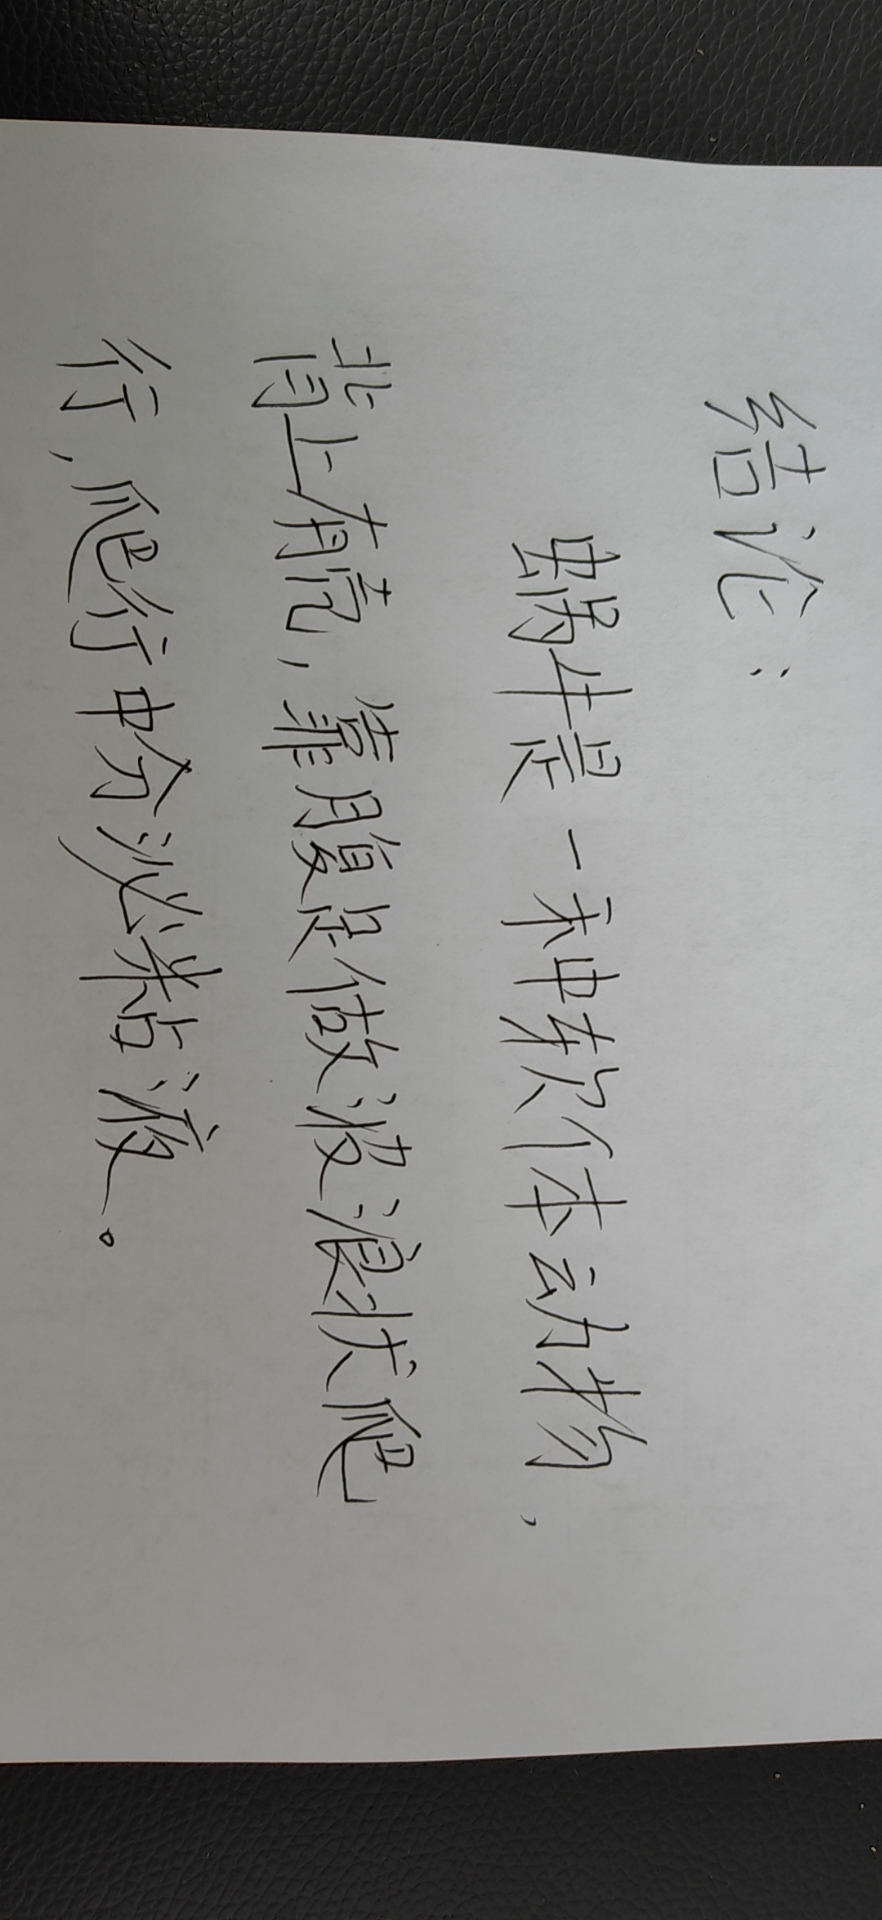 结论:
蜗牛是一种软体动物,
背上有壳,靠腹足做波浪状爬
行,爬行中分泌粘液。